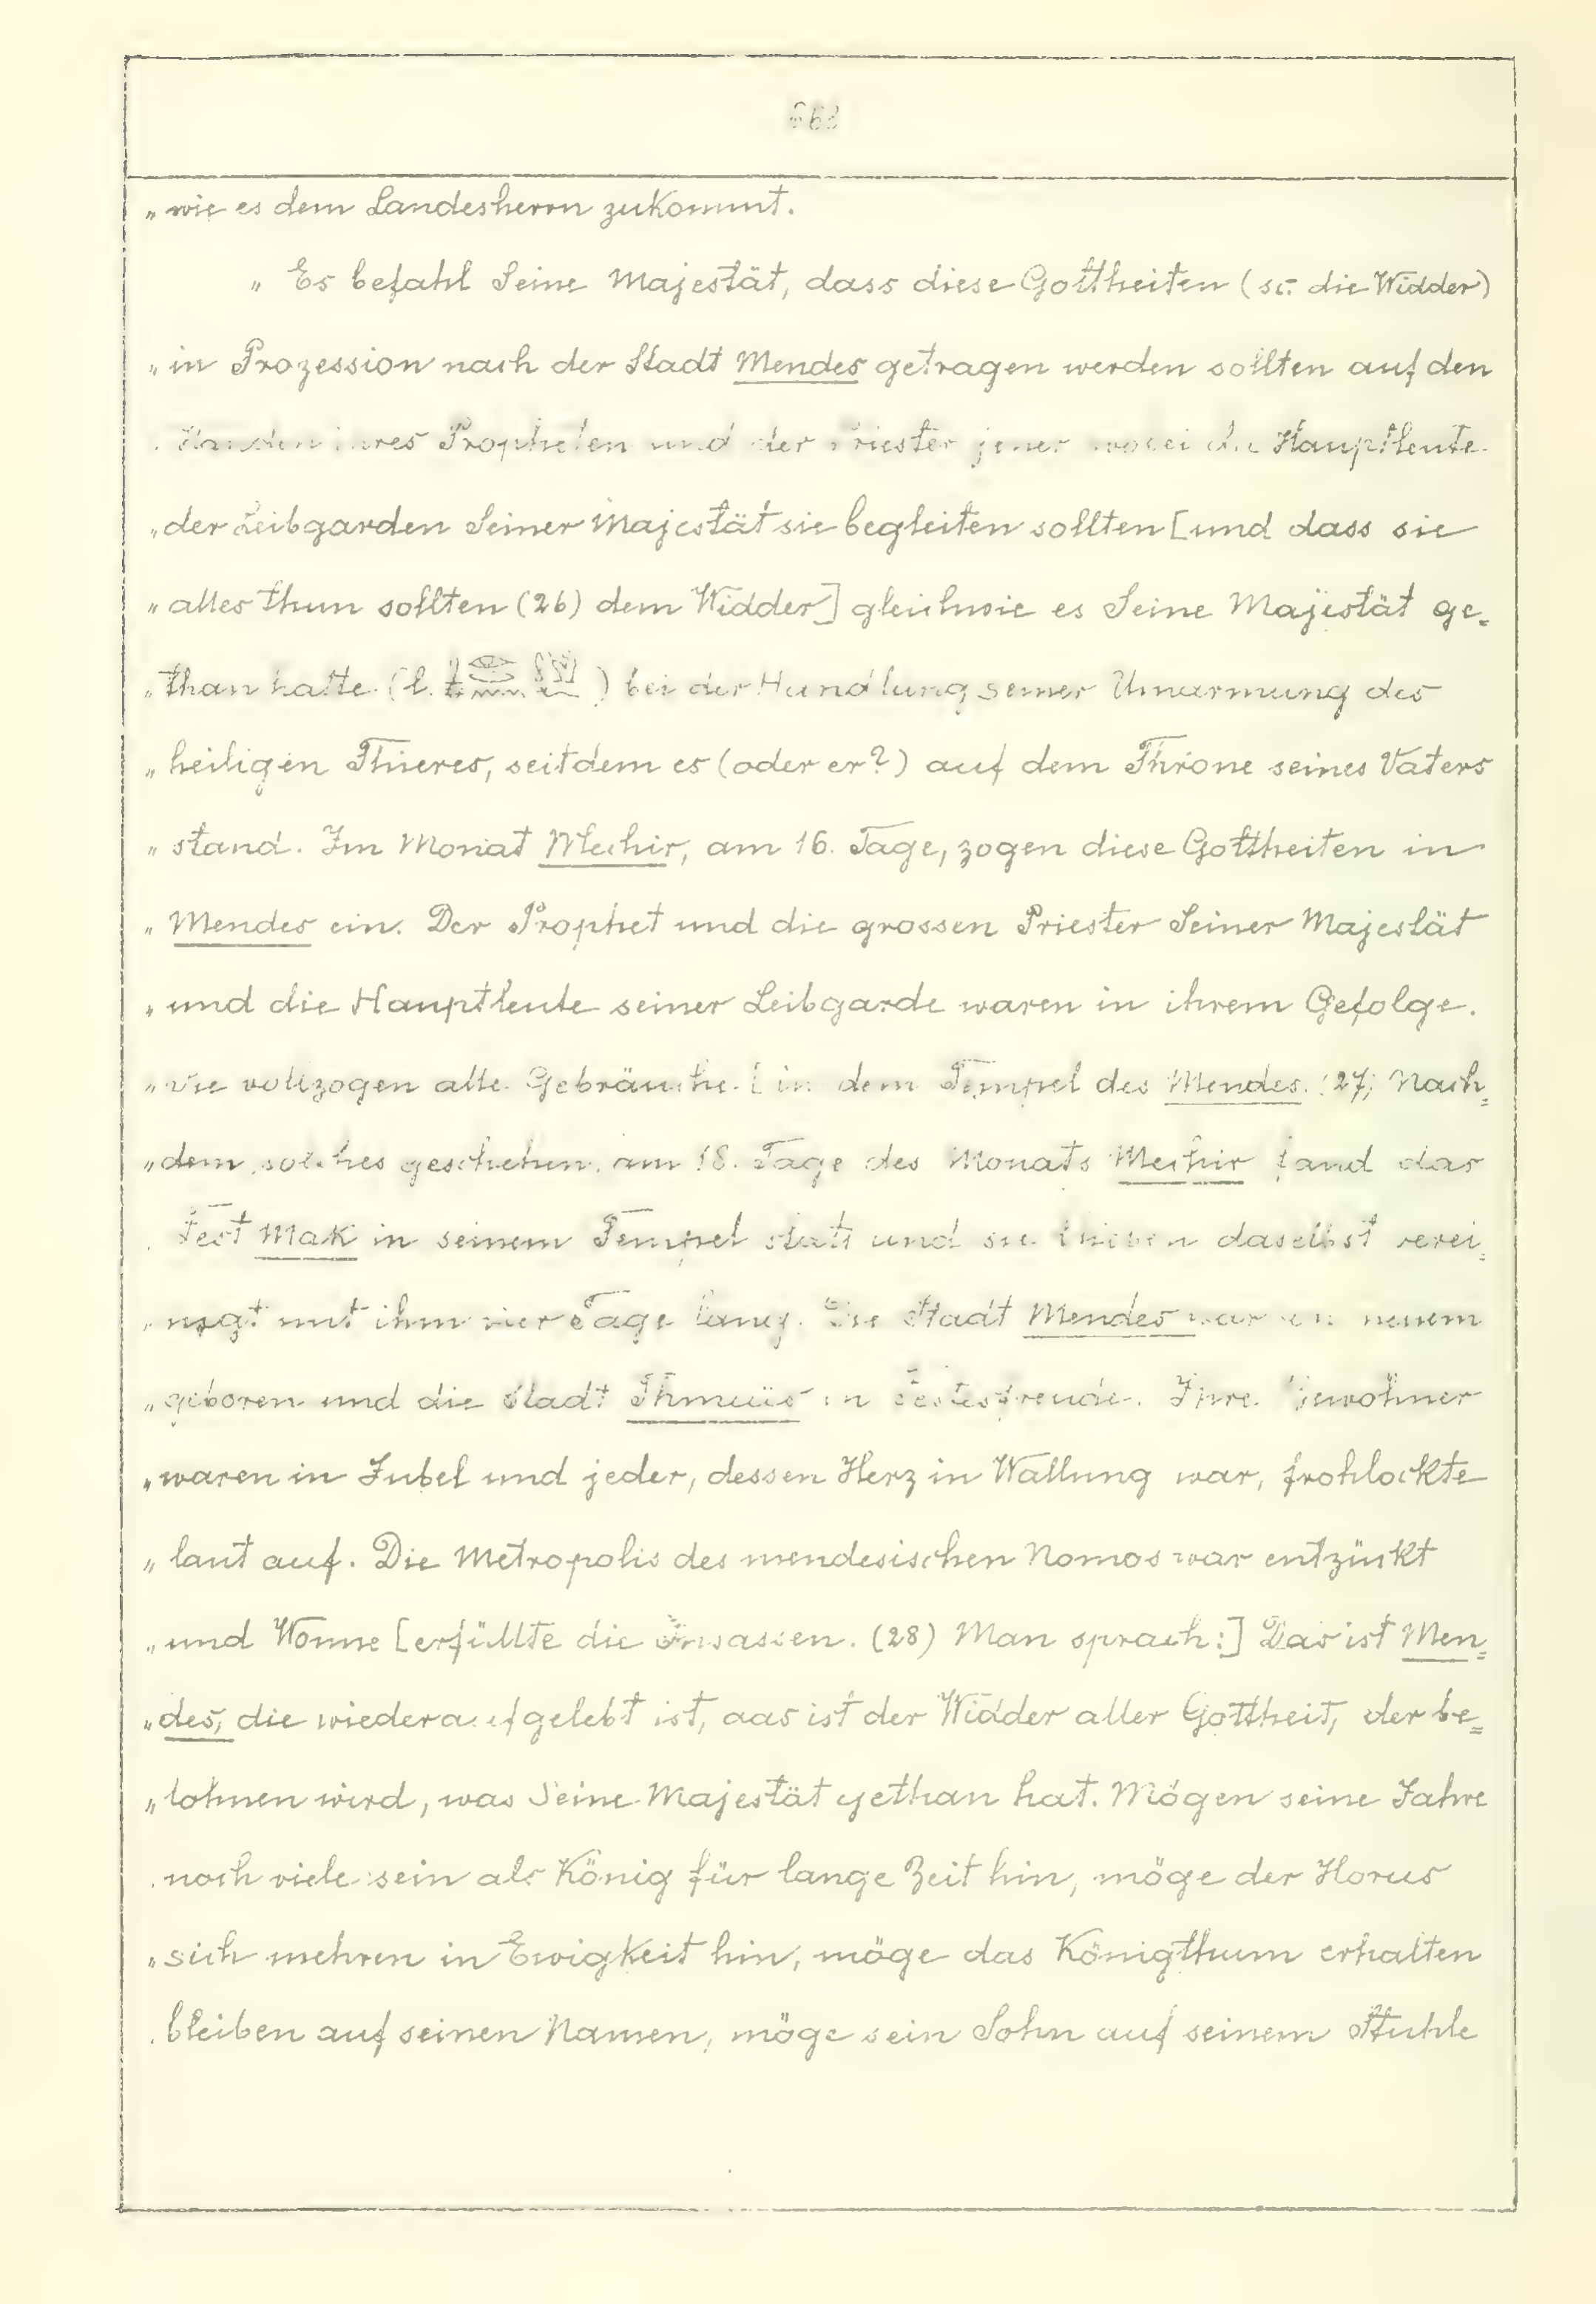 668
„wie es dem Landesherrn zukommt.
„Es befahl Seine Majestät, dass diese Gottheiten (sc. die Widder)
„in Prozession nach der Stadt Mendes getragen werden sollten auf den
Propheten und der Priester jener wobei die Hauptleute
„der Leibgarden Seiner Majestät sie begleiten sollten [und dass sie
„alles thun sollten (26) dem Widder] gleichwie es Seine Majestät ge=
„than hatte (l. ) bei der Handlung seiner Umarmung des
„heiligen Thieres, seitdem es (oder er?) auf dem Throne seines Vaters
„stand. Im Monat Mechir, am 16. Tage, zogen diese Gottheiten in
„Mendes ein. Der Prophet und die grossen Priester Seiner Majestät
„und die Hauptleute seiner Leibgarde waren in ihrem Gefolge.
„Sie vollzogen alle Gebräuche [in dem Tempel des Mendes. (27) Nach=
„dem solches geschehen, am 18. Tage des Monats Mechir fand das
Fest Mak in seinem Tempel statt und sie blieben daselbst verei=
„nigt mit ihm vier Tage lang. Die Stadt Mendes war von neuem
„geboren und die Stadt Thmuïs in Festesfreude. Ihre Bewohner
„waren in Jubel und jeder, dessen Herz in Wallung war, frohlockte
„laut auf. Die Metropolis des mendesischen Nomos war entzückt
„und Wonne [erfüllte die Insassen. (28) Man sprach:] Das ist Men=
„des, die wiederaufgelebt ist, das ist der Widder aller Gottheit, der be=
„lohnen wird, was Seine Majestät gethan hat. Mögen seine Jahre
„noch viele sein als König für lange Zeit hin, möge der Horus
„sich mehren in Ewigkeit hin, möge das Königthum erhalten
„bleiben auf seinen Namen, möge sein Sohn auf seinem Stuhle